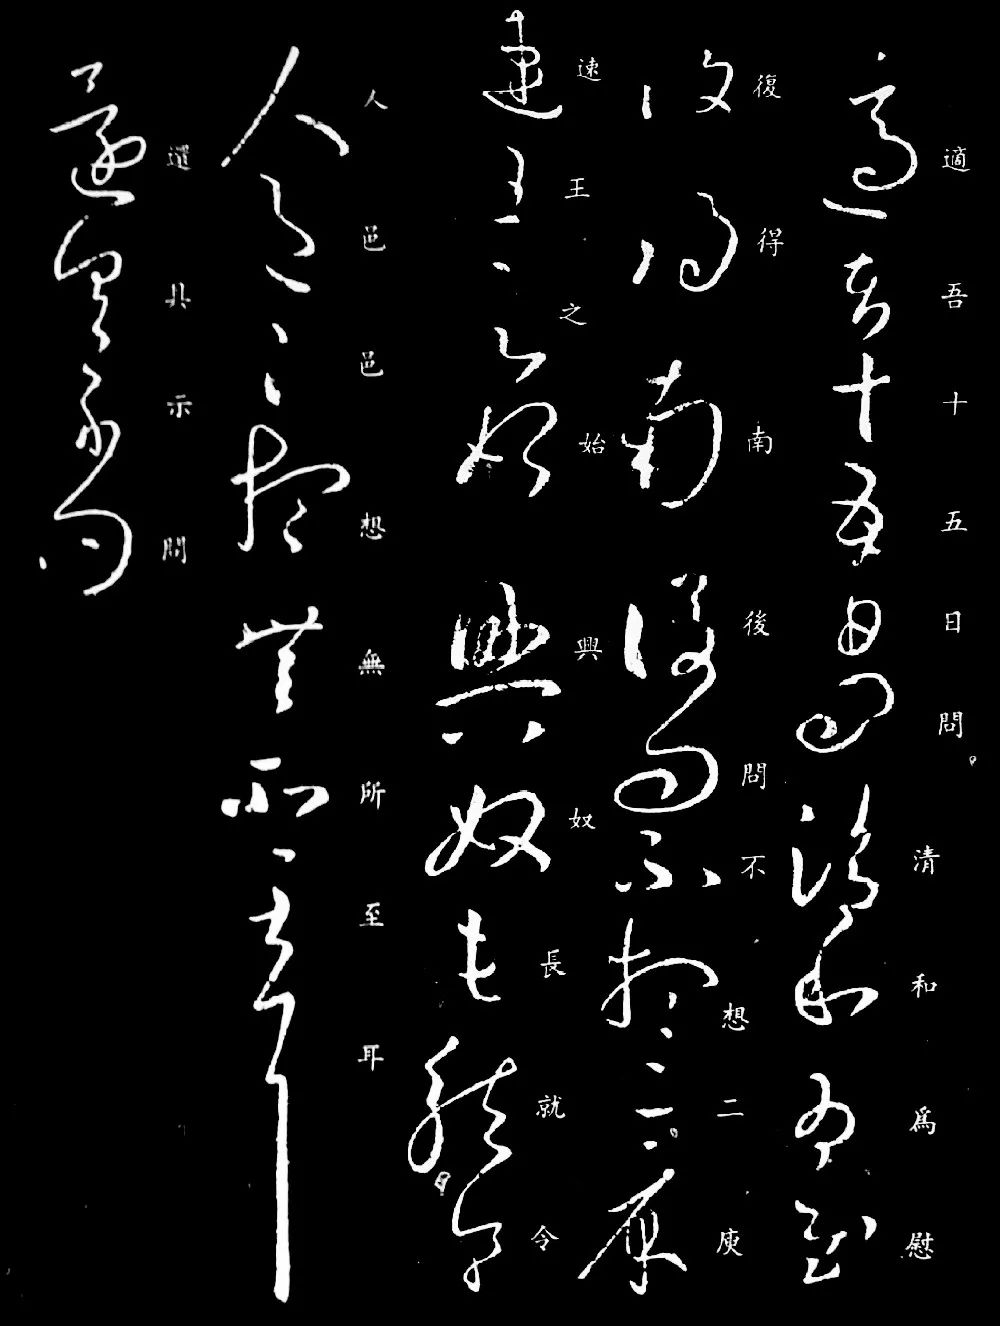 適吾十五日問清和爲慰
復得南後問不想二庾
速王之始興奴長就令
人邑邑想無所至耳
還具示問